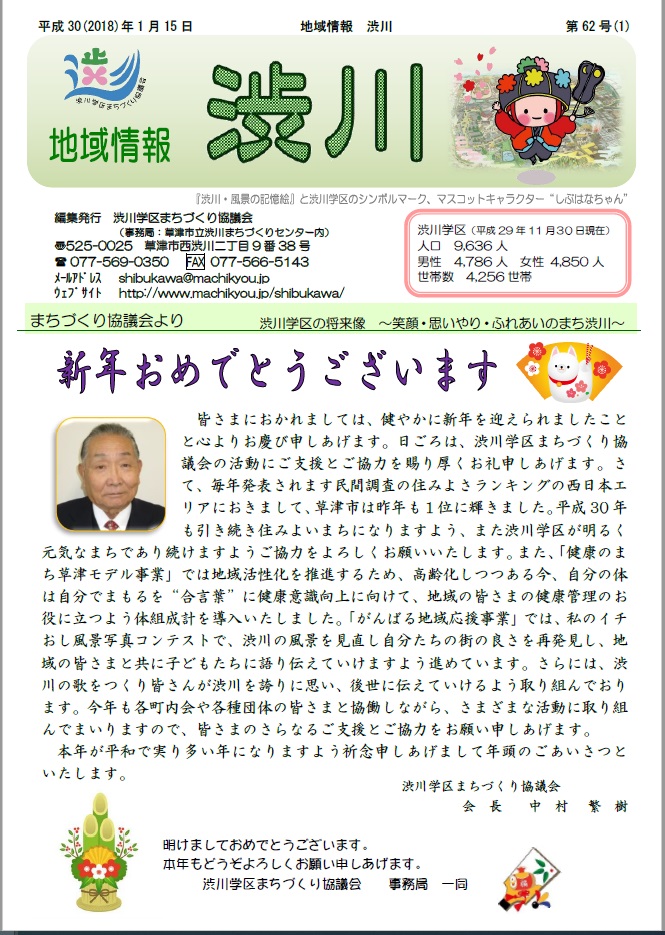 平成30(2018)年1月15日 地域情報 渋川 第62号(1)
渋川学区まちづくり協議会
地域情報 渋川
『渋川・風景の記憶絵』と渋川学区のシンボルマーク、マスコットキャラクター“しぶはなちゃん”
編集発行 渋川学区まちづくり協議会
（事務局：草津市立渋川まちづくりセンター内）
〠525-0025 草津市西渋川二丁目9番38号
☎ 077-569-0350 FAX 077-566-5143
ﾒｰﾙｱﾄﾞﾚｽ shibukawa@machikyou.jp
ｳｪﾌﾞｻｲﾄ http://www.machikyou.jp/shibukawa/
渋川学区（平成29年11月30日現在）
人口 9,636人
男性 4,786人 女性 4,850人
世帯数 4,256世帯
まちづくり協議会より 渋川学区の将来像 ～笑顔・思いやり・ふれあいのまち渋川～
新年おめでとうございます
皆さまにおかれましては、健やかに新年を迎えられましたこと
と心よりお慶び申しあげます。日ごろは、渋川学区まちづくり協
議会の活動にご支援とご協力を賜り厚くお礼申しあげます。さ
て、毎年発表されます民間調査の住みよさランキングの西日本エ
リアにおきまして、草津市は昨年も１位に輝きました。平成30年
も引き続き住みよいまちになりますよう、また渋川学区が明るく
元気なまちであり続けますようご協力をよろしくお願いいたします。また、「健康のま
ち草津モデル事業」では地域活性化を推進するため、高齢化しつつある今、自分の体
は自分でまもるを“合言葉”に健康意識向上に向けて、地域の皆さまの健康管理のお
役に立つよう体組成計を導入いたしました。「がんばる地域応援事業」では、私のイチ
おし風景写真コンテストで、渋川の風景を見直し自分たちの街の良さを再発見し、地
域の皆さまと共に子どもたちに語り伝えていけますよう進めています。さらには、渋
川の歌をつくり皆さんが渋川を誇りに思い、後世に伝えていけるよう取り組んでおり
ます。今年も各町内会や各種団体の皆さまと協働しながら、さまざまな活動に取り組
んでまいりますので、皆さまのさらなるご支援とご協力をお願い申しあげます。
本年が平和で実り多い年になりますよう祈念申しあげまして年頭のごあいさつと
いたします。
渋川学区まちづくり協議会
会 長 中 村 繁 樹
明けましておめでとうございます。
本年もどうぞよろしくお願い申しあげます。
渋川学区まちづくり協議会 事務局 一同